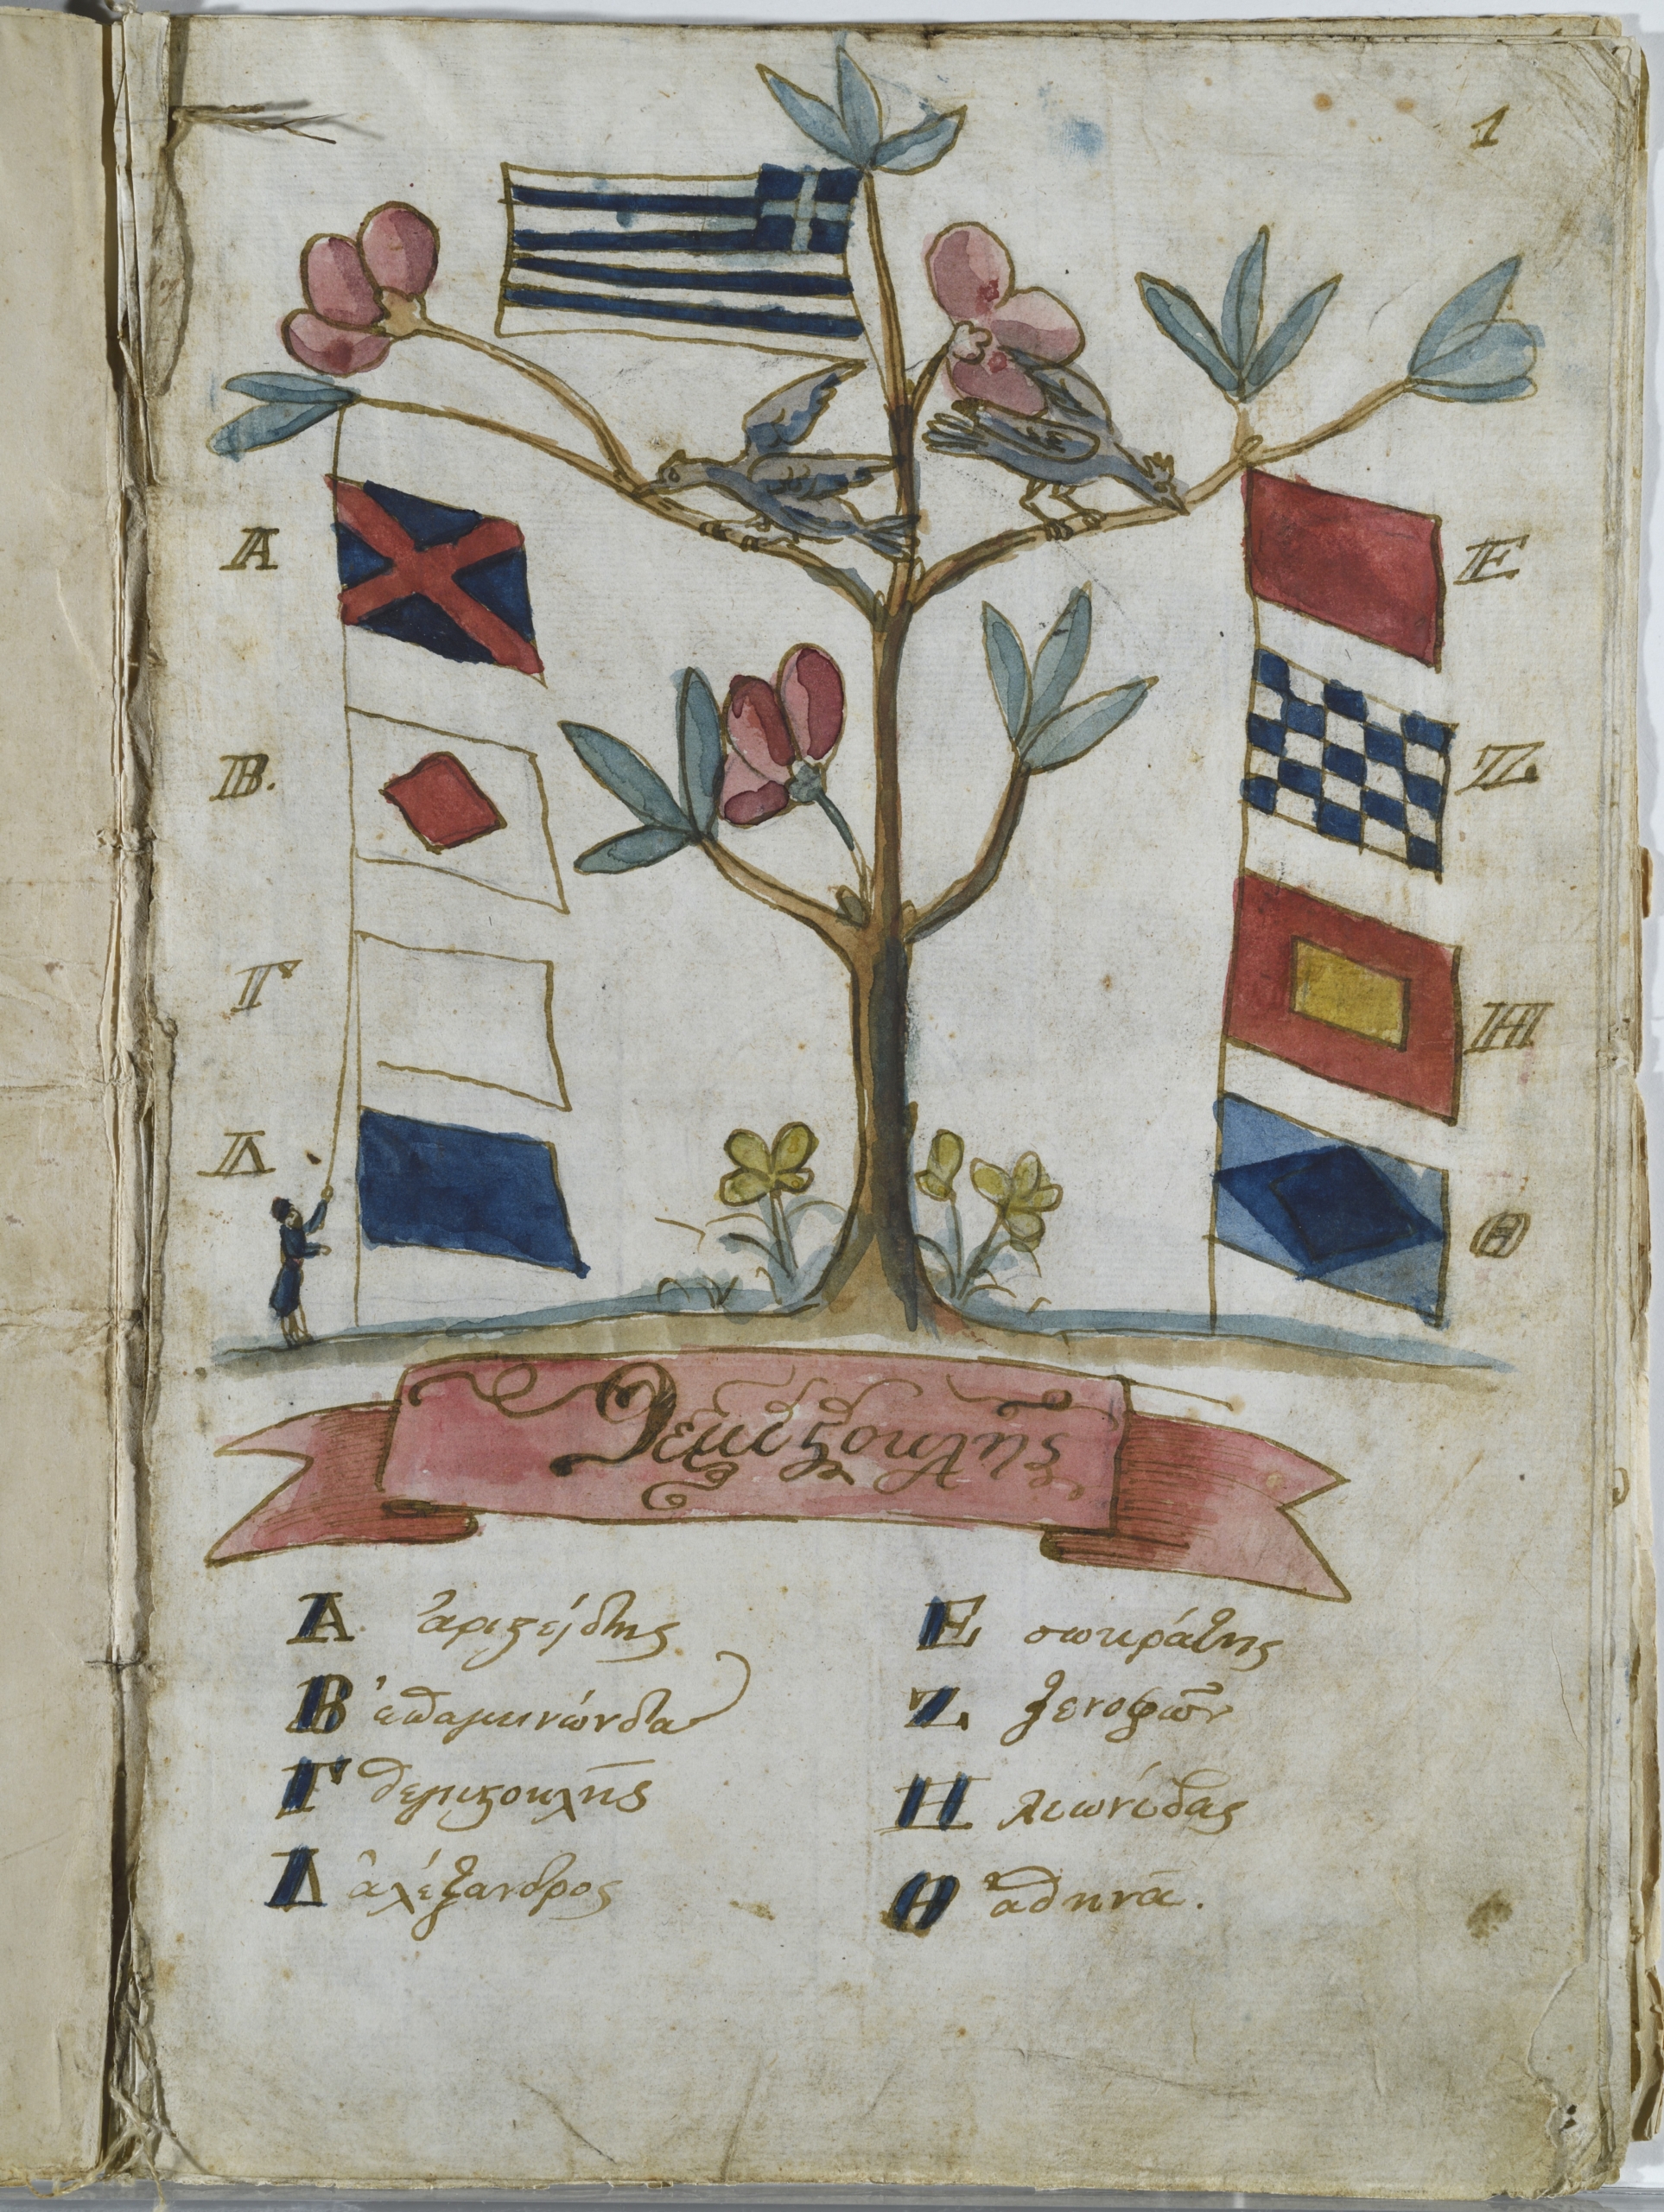 1
Α
Β.
Γ
Δ
Ε
Ζ
Η
Θ
Θεμιϛοκλῆς
Α ἀριϛείδης
Β ἐπαμινώνδα
Γ θεμιϛοκλῆς
Δ ἀλέξανδρος
Ε σωκράτης
Ζ ξενοφῶν
Η λεωνίδας
Θ ἀθηνᾶ.